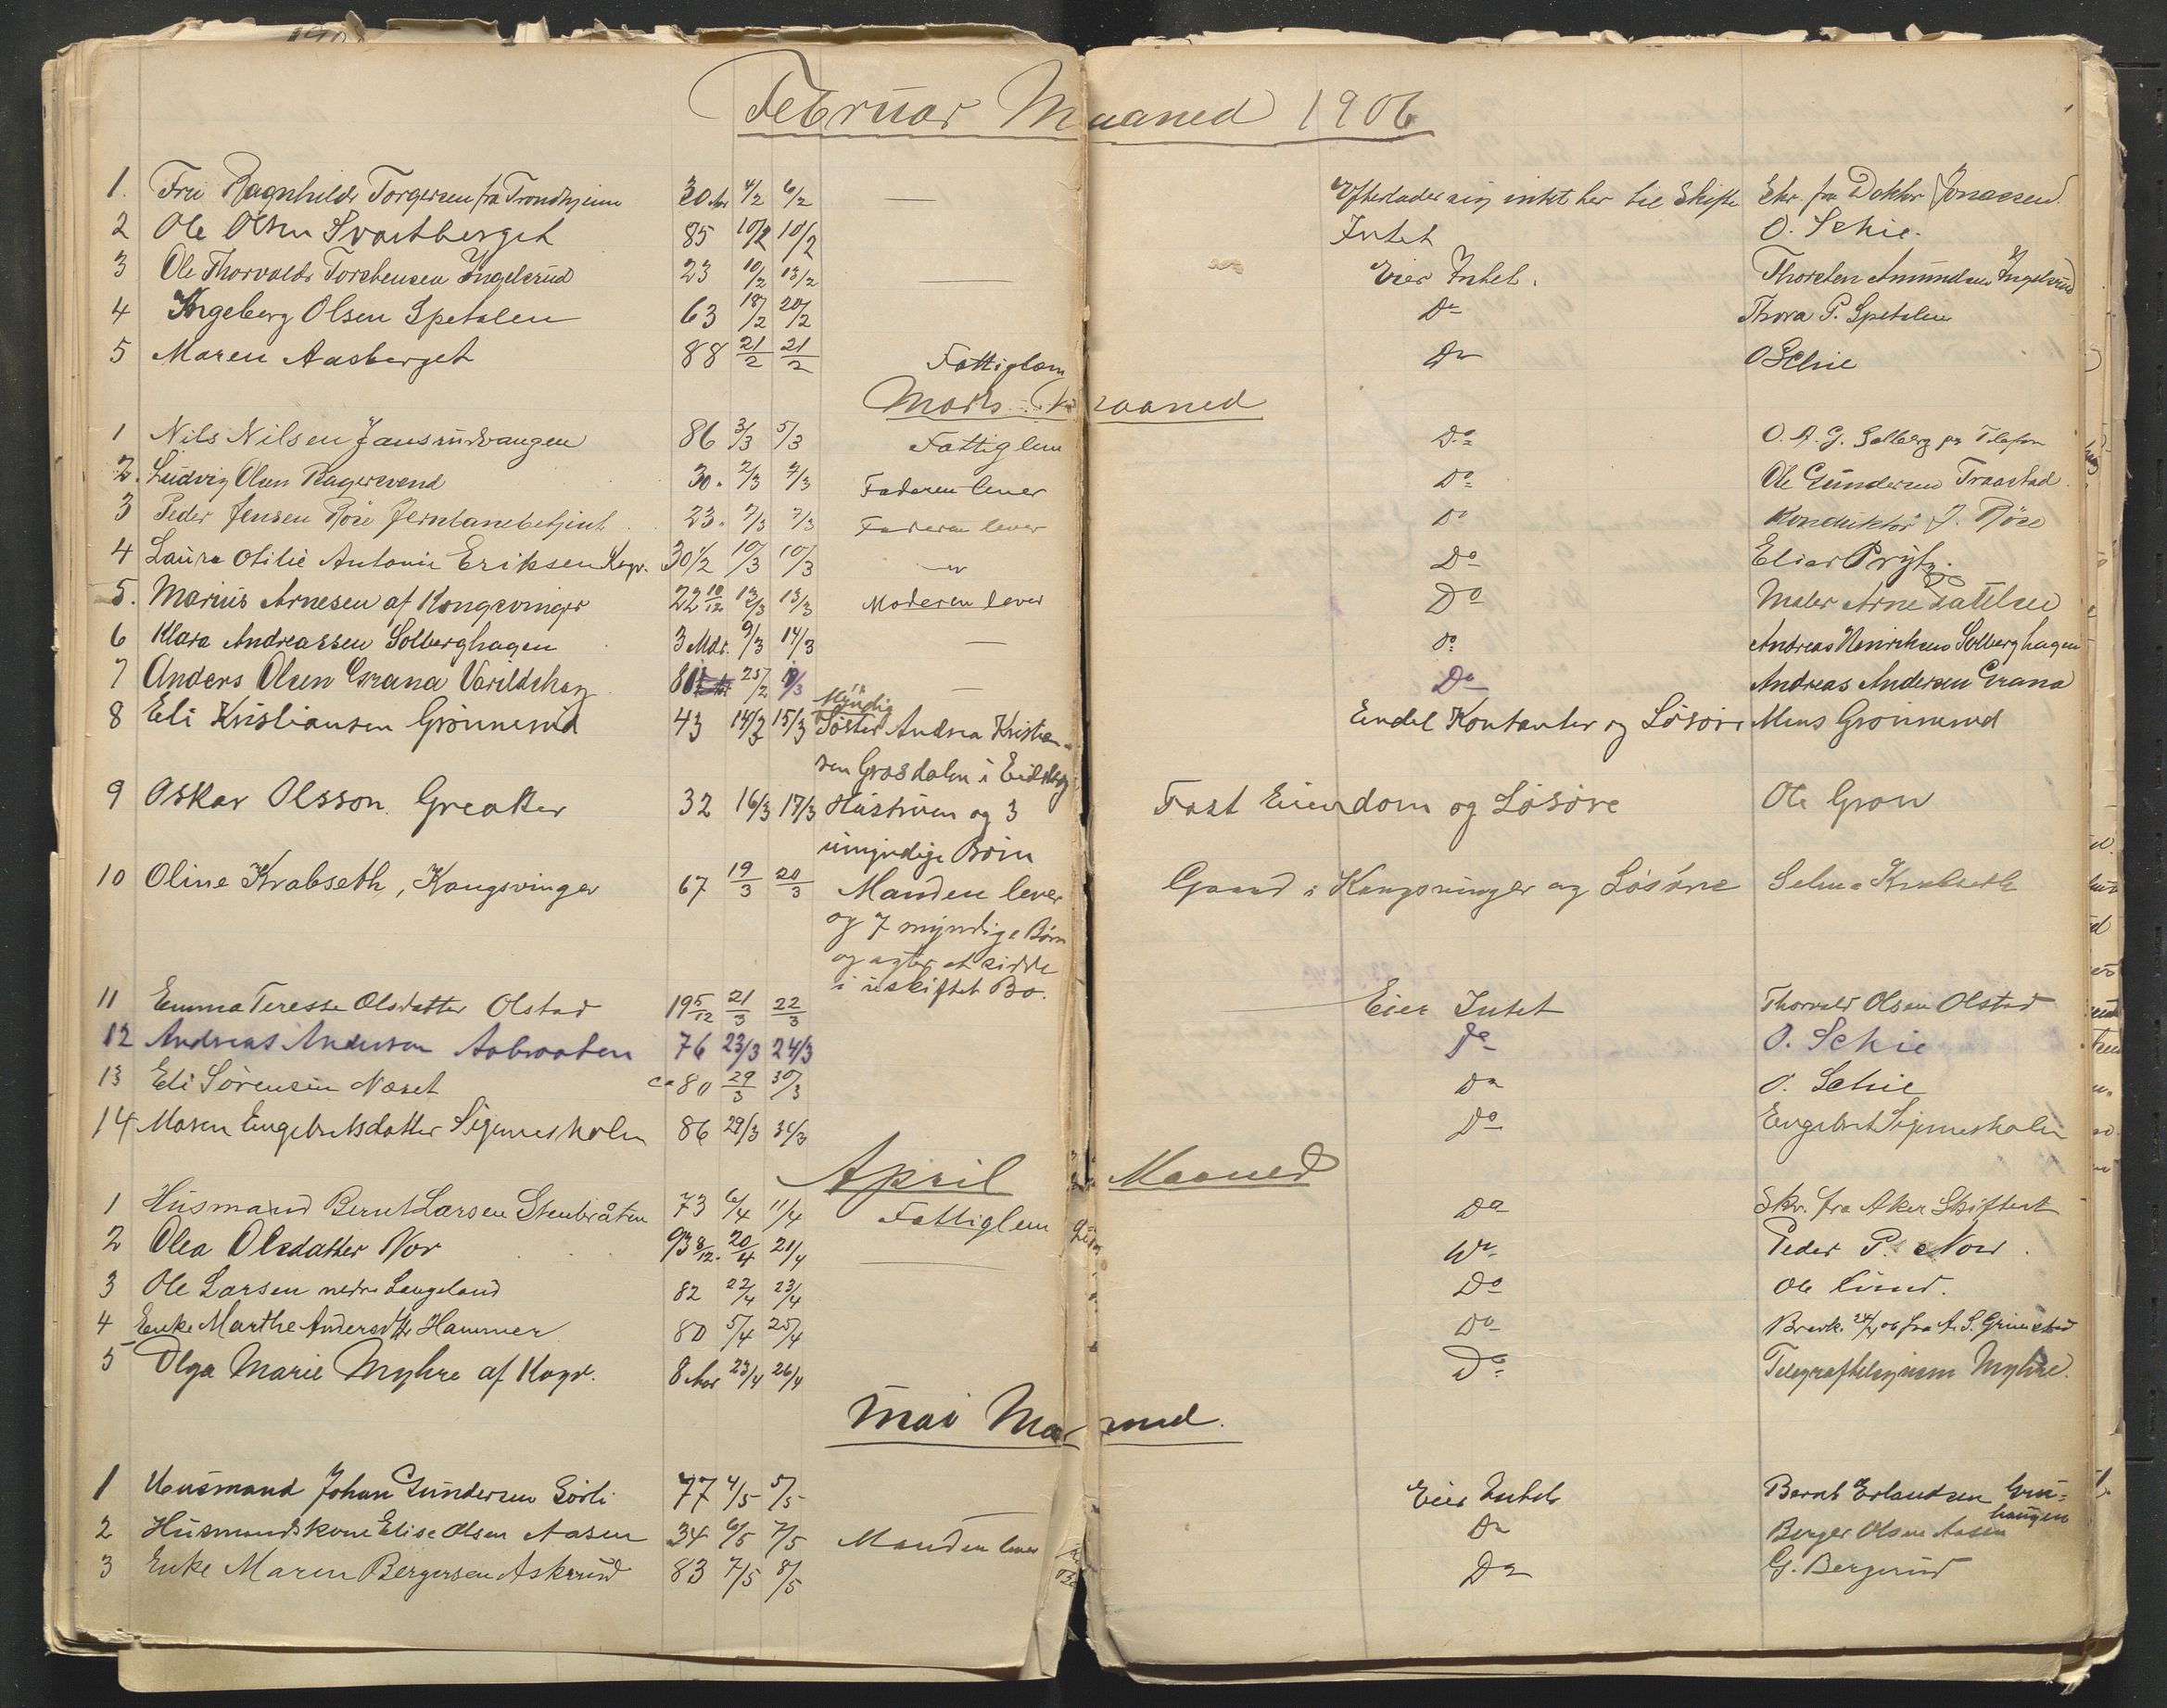 Februar Maaned 1906
1. Fru Ragnhild Torgersen fra Trondhjem 30 Aar 4/2 6/2 — Efterlader sig intet her til Skifte Skr. fra Doktor Jonassen
2 Ole Olsen Svartberget 85 10/2 10/2 Intet O. Schie.
3 Ole Thorvald Torstensen Ingelsrud 23 10/2 13/2 — Eier Intet. Thorsten Amundsen Ingelsrud
4 Ingeborg Olsen Spetalen 63 18/2 20/2 Do Thora P. Spetalen
5 Maren Aasberget 88 21/2 21/2 Fattiglem Do O Schie
Marts Maaned
1 Nils Nilsen Jansrudvangen 86 3/3 5/3 Fattiglem Do O. A. G. Solberg pr Telefon
2. Ludvig Olsen Ragersvend 30. 2/3 7/3 Faderen lever Do Ole Gundersen Traastad
3 Peder Jensen Röse Jernbanebetjent 23. 7/3 7/3 Faderen lever Do Konduktör J. Röse
4 Laura Otilie Antonie Eriksen Kgv. 30 1/2 10/3 10/3 — Do Elias Prytz.
5. Marius Arnesen af Kongsvinger 22 10/12 13/3 13/3 Moderen lever Do Maler Arne
6 Klara Andreassen Solberghagen 3 Mdr. 9/3 14/3 — Do Andreas Henriksen Solberghagen
7 Anders Olsen Grana Varildskog 81 25/2 /3 — Do Andreas Andersen Grana
8 Eli Kristiansen Grönnerud 43 14/3 15/3 Myndig Søster Andrea Kristian-
sen Grasdalen i Eidskog Endel Kontanter og Løsøre Mons Grönnerud
9 Oskar Olsson. Greaker 32 16/3 17/3 Hustruen og 3
umyndige Børn Fast Eiendom og Løsøre Ole Gron
10 Oline Krabseth, Kongsvinger 67 19/3 20/3 Manden lever
og 7 myndige Børn
og agter at sidde
i uskiftet Bo. Gaard i Kongsvinger og Løsøre Selma Krabseth
11 Emma Terese Olsdatter Olstad 19 5/12 21/3 22/3 — Eier Intet Thorvald Olsen Olstad
12 Andreas Anderson Aabraaten 76 23/3 24/3 Do O. Schie
13 Eli Sörensen Næset ca 80 29/3 30/3 Do O. Schie
14 Maren Engebretsdatter Sigernesholm 86 29/3 31/3 Do Engebret Sigernesholm
April Maaned
1 Husmand Bernt Larsen Stenbråten 73 6/4 11/4 Fattiglem Do Skr. fra Aker Skifteret
2 Olea Olsdatter Nor 93 8/12. 20/4 21/4 — Do Peder P. Nor.
3 Ole Larsen nedre Langeland 82 22/4 23/4 Do Ole Lund.
4 Enke Marthe Andersdtr Hammer 80 5/4 25/4 Do Brevk. 24/4 06 fra A. S. Grimstad
5 Olga Marie Myhre af Kogv. 8 Aar 23/4 26/4 Do Telegrafbetjent Myhre.
Mai Maaned.
1 Husmand Johan Gundersen Sörli 77 4/5 5/5 — Eier Intet Bernt Erlandsen Gru-
haugen
2 Husmandskone Elise Olsen Aasen 34 6/5 7/5 Manden lever Do Berger Olsen Aasen
3 Enke Maren Bergersen Askerud 83 7/5 8/5 Do G. Bergerud